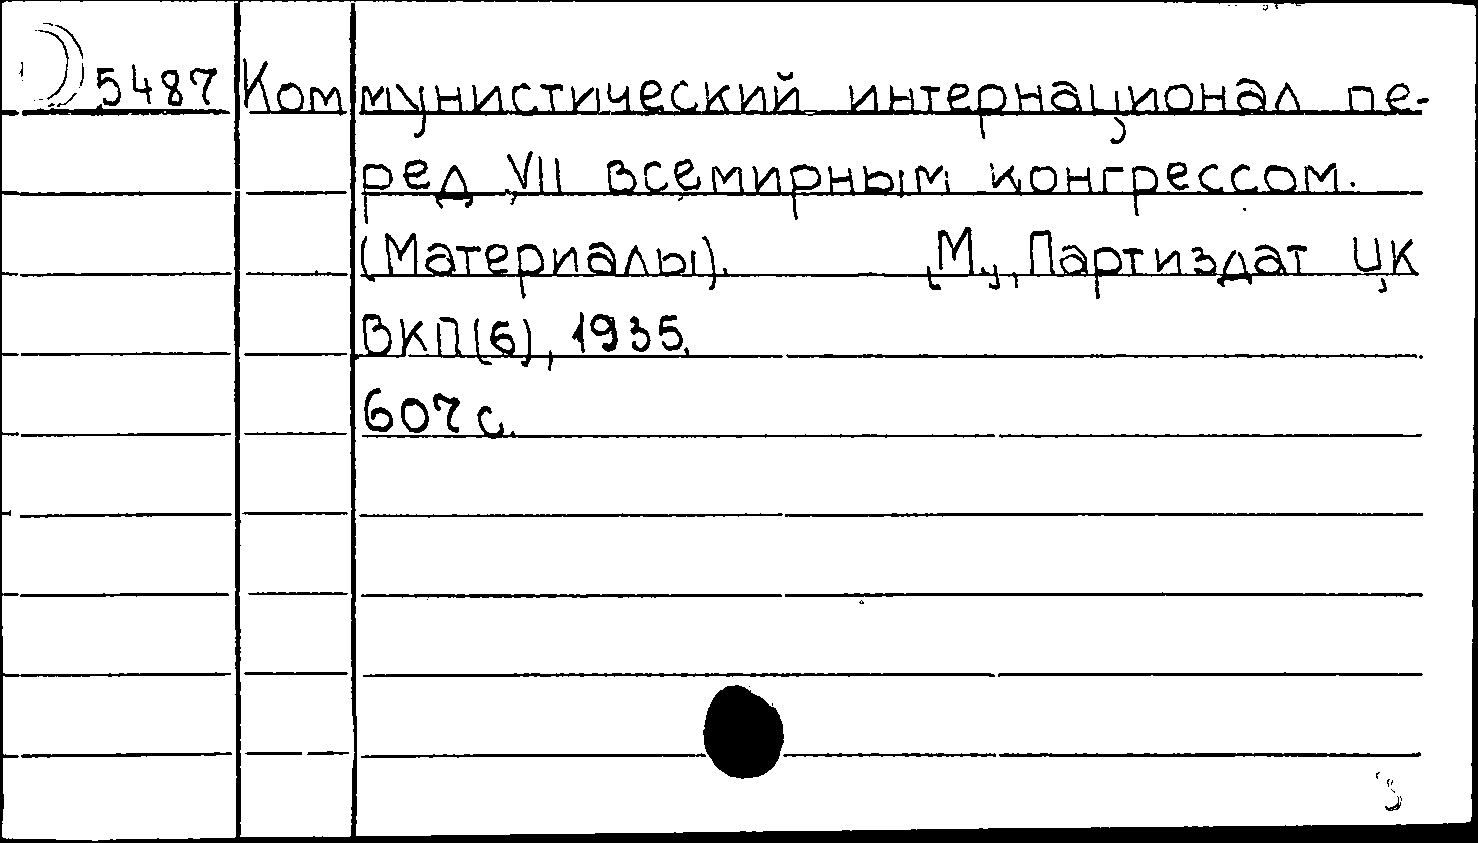 5487 Коммунистический интернационал пе-
ред VII всемирным конгрессом.
(Материалы). [М.], Партиздат ЦК
ВКП(б), 1935.
607 с.